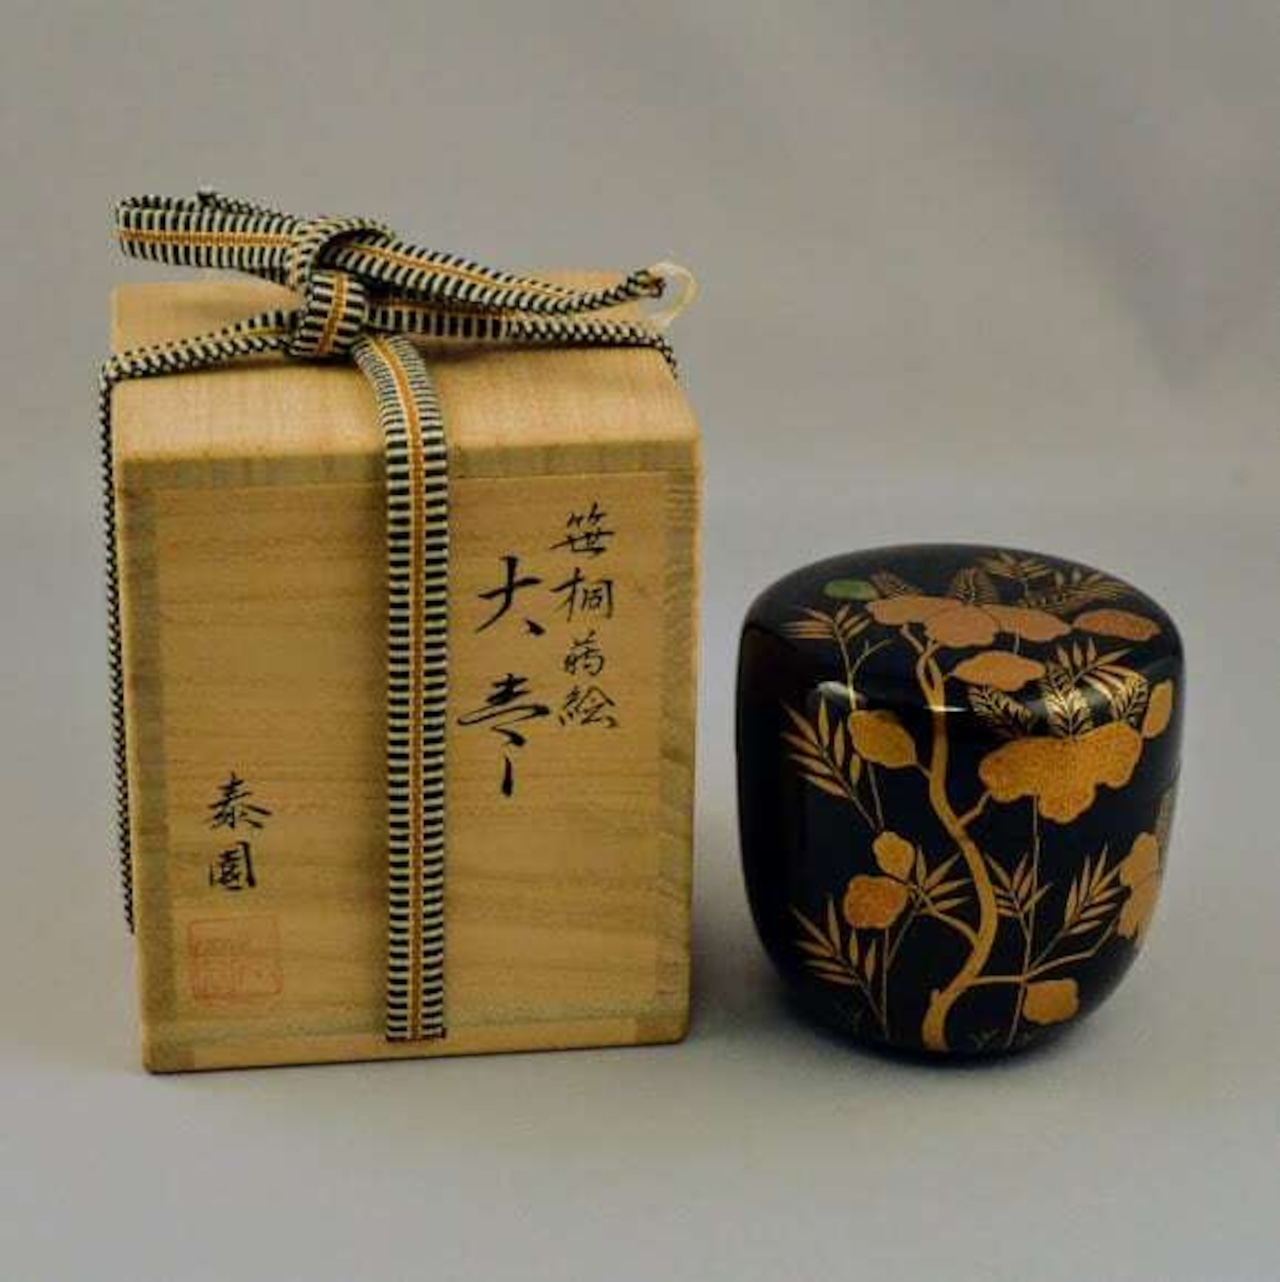 笹桐蒔絵
大棗
泰園